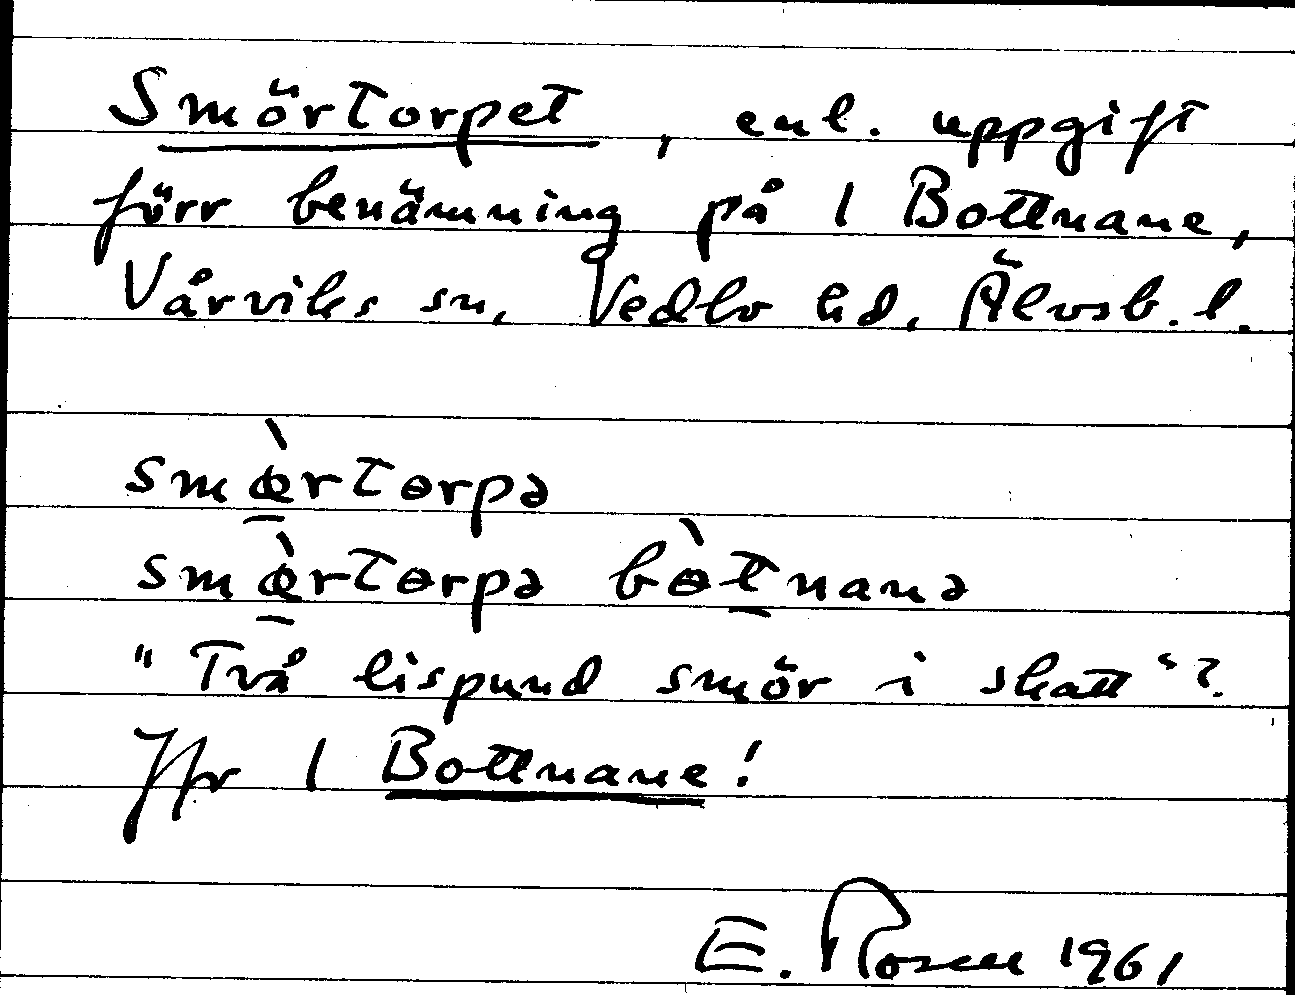 Smörtorpet, enl. uppgift
förr benämning på 1 Bottnane,
Vårviks sn, Vedbo hd, Älvsb. l.
smœ̀rtɵrpə
smœ̀rtɵrpə bɵ̀tnanə
"Två lispund smör i skatt"?
Jfr 1 Bottnane!
E. Rosen 1961